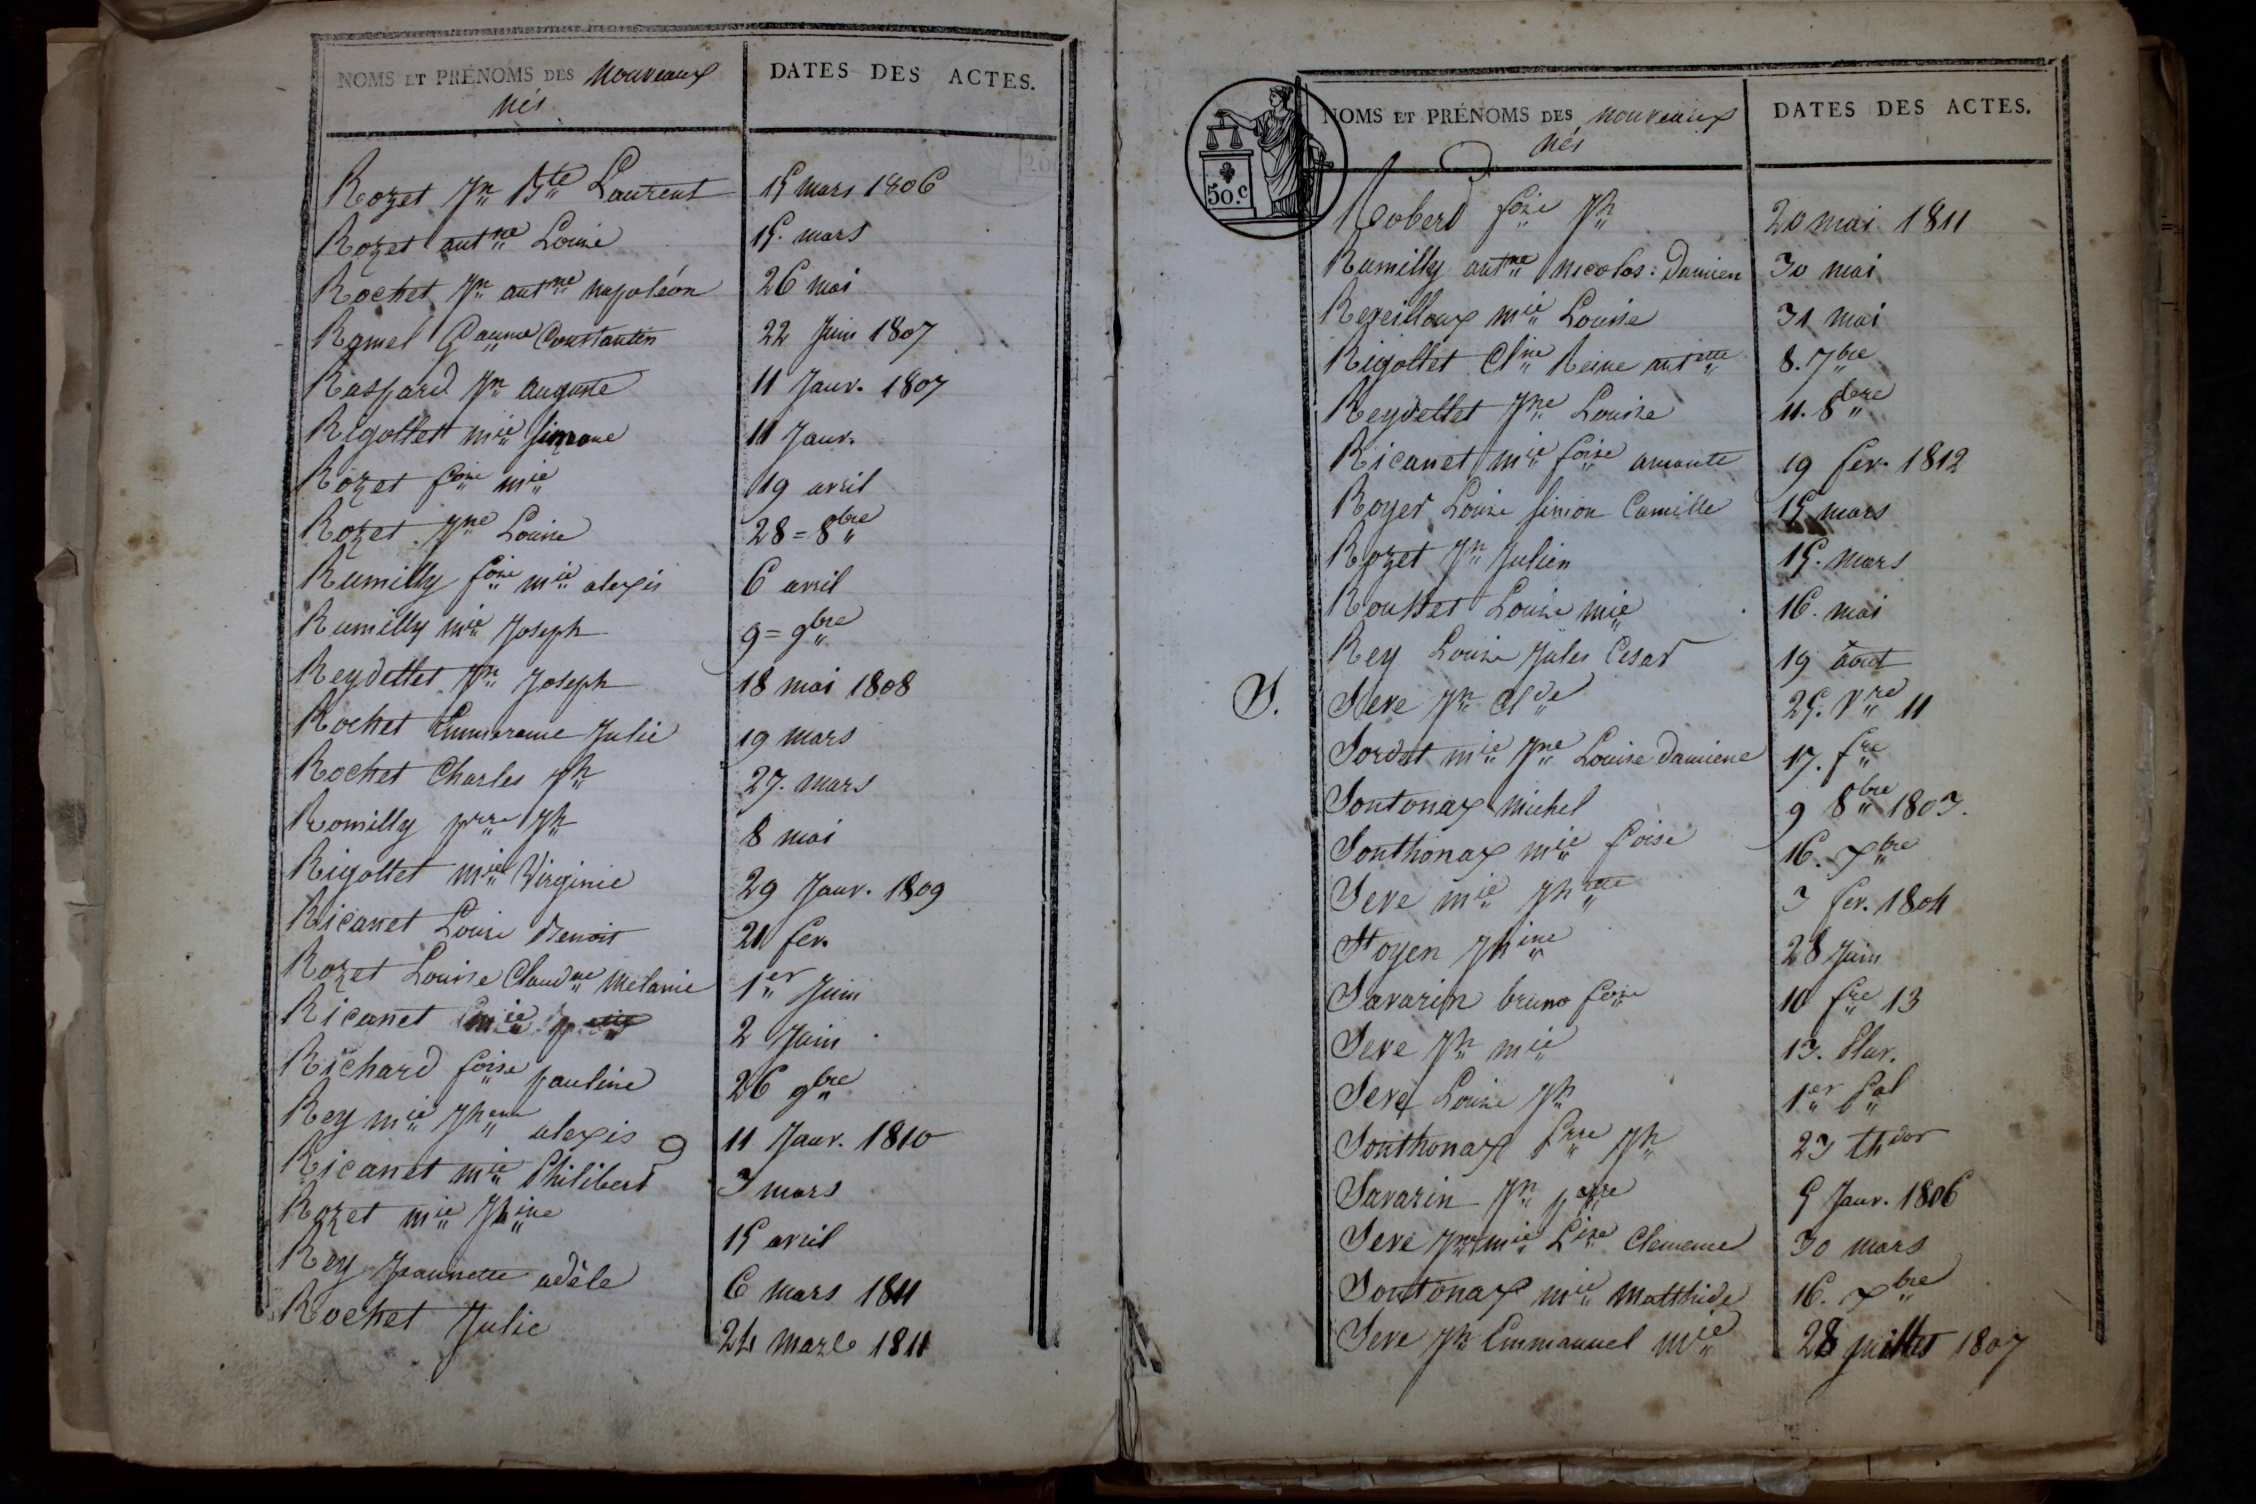 NOMS ET PRÉNOMS DES nouveaux nés
DATES DES ACTES.
Rozet Jn Bte Laurent 15 mars 1806
Rozet antne Louise 15. mars
Rochet Jn antne napoléon 26 mai
Ramel Constantin 22 Juin 1807
Raspard Jn auguste 11 Janv. 1807
Rigollet mie Simone 11 Janv.
Rozet foise mie 19 avril
Rozet Jne Louise 28 = 8bre
Rumilly fois mie alexis 6 avril
Rumilly mie Joseph 9 = 9bre
Reydellet Jn Joseph 18 mai 1808
Rochet Julie 19 mars
Rochet Charles Jh 27. mars
Romilly pre Jh 8 mai
Rigollet mie Virginie 29 Janv. 1809
Ricanet Louis Benoit 21 fev.
Rozet Louise Claudne melanie 1er Juin
Ricanet mie 2 Juin
Richard foise pauline 26 9bre
Rey mie alexis 11 Janv. 1810
Ricanet mie Philibert 3 mars
Rozet mie Jhine 15 avril
Rey Jeannette adèle 6 mars 1811
Rochet Julie 24 mars 1811
50.c
NOMS ET PRÉNOMS DES nouveaux nés
DATES DES ACTES.
Roberd fois Jh 20 mai 1811
Rumilly antne nicolas Damien 30 mai
Reveilloux mie Louise 31 mai
Rigollet Clne Reine antette 8. 7bre
Reydellet Jne Louise 11. 8bre
Ricanet mie foise amante 19 fev. 1812
Royer Louis Simon Camille 15 mars
Rozet Jn Julien 15. mars
Rousset Louise mie 16. mai
Rey Louis Jules Cesar 19 aout
S.
Seve Jh Clde 25. Vre 11
Sordet mie Jne Louise Damiene 17. fre
Sontonax michel 9 8bre 1803.
Sonthonax mie foise 16. Xbre
Seve mie Jhtte 3 fev. 1804
Stoyen Jhine 28 Juin
Savarin bruno fois 10 fre 13
Seve Jh mie 13. Pluv.
Seve Louis Jh 1er
Sonthonax Jh 23 thdor
Savarin Jn pierre 5 Janv. 1806
Seve Jne mie Clemence 30 mars
Sontonax mie Matthide 16. Xbre
Seve Jh Emmanuel mie 28 juillet 1807